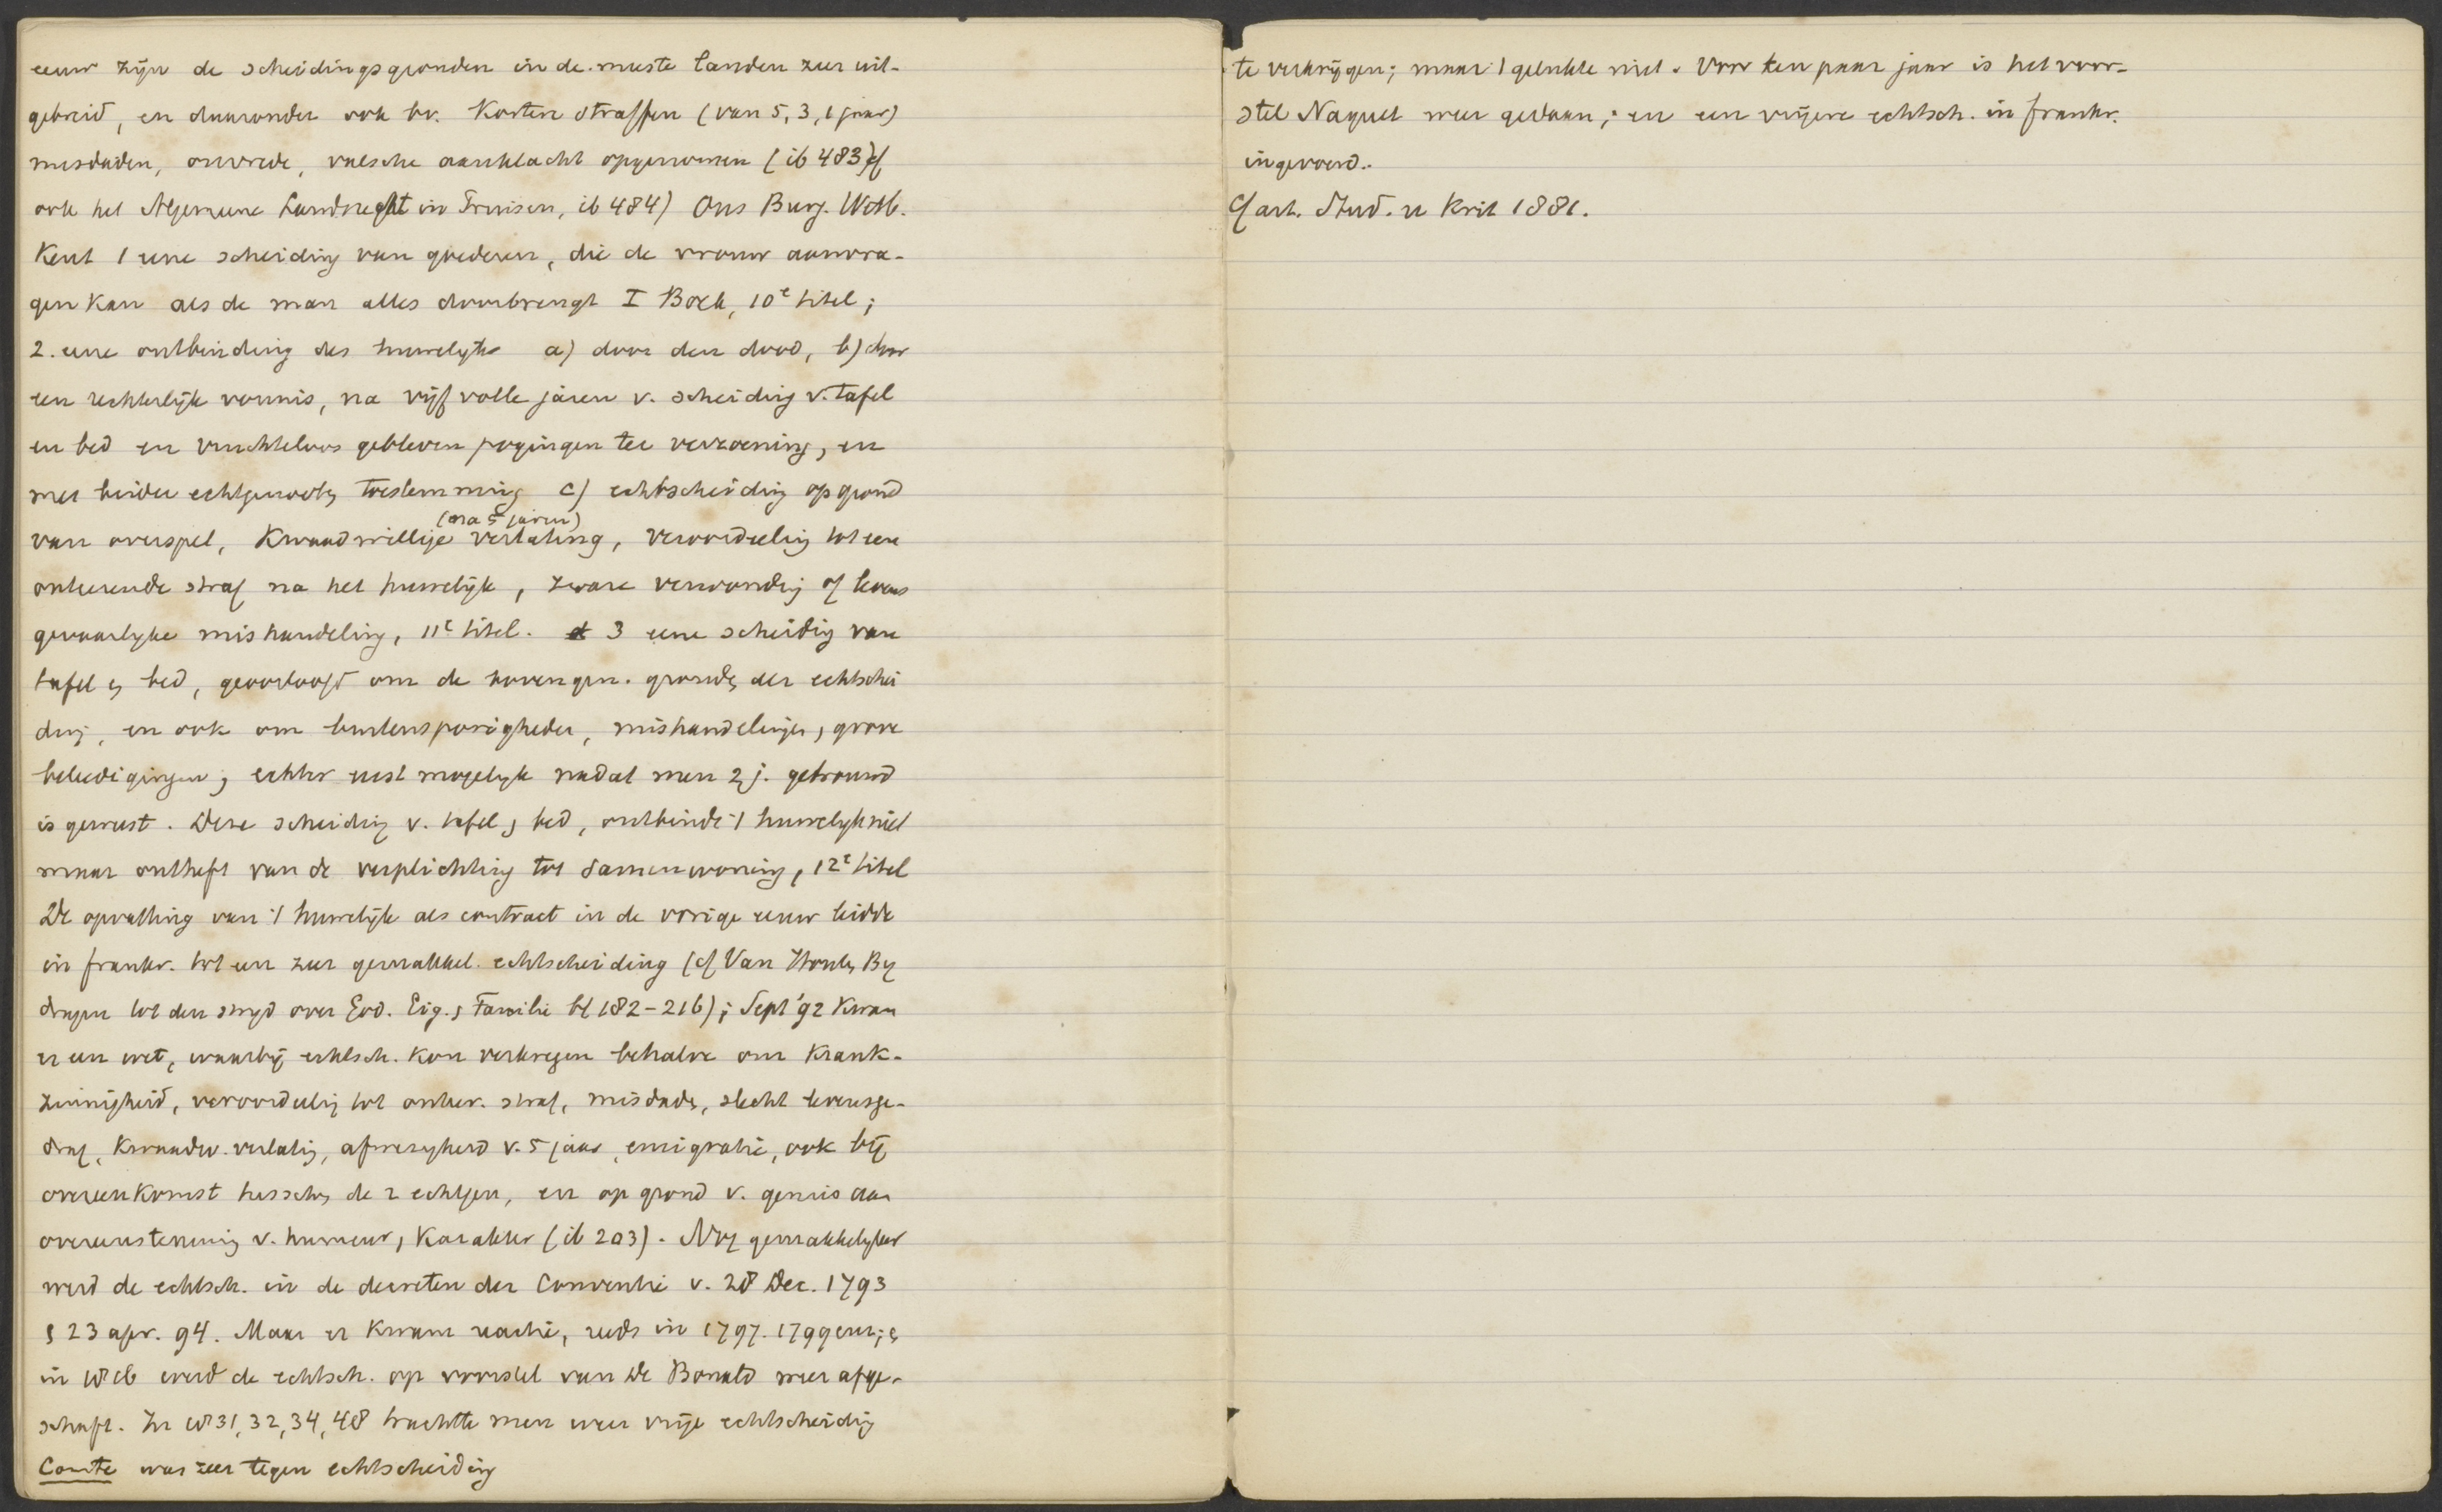 eeuw zijn de scheidingsgronden in de meeste landen zeer uit-
gebreid, en daaronder ook bv. korten straffen (van 5, 3, 1 jaar)
misdaden, onvrede, valsche aanklacht opgenomen (ib 483) cf
ook het Algemeene Landrecht in Pruisen, ib 484) Ons Burg. Wetb.
kent 1 eene scheiding van goederen, die de vrouw aanvra-
gen kan als de man alles doorbrengt I Boek, 10e titel;
2. eene ontbinding des huwelyks a) door den dood, b) door
een rechterlijk vonnis, na vijf volle jaren v. scheiding v. tafel
en bed en vruchteloos gebleven pogingen ter verzoening, en
met beider echtgenooten toestemming c) echtscheiding op grond
van overspel, kwaadwillige verlating, veroordeeling tot eene
(na 5 jaren)
onteerende straf na het huwelijk, zware verwonding of levens
gevaarlyke mishandeling, 11e titel. 3 eene scheiding van
tafel en bed, geoorloofd om de bovengen. gronden der echtschei
ding, en ook om buitensporigheden, mishandelingen, grove
beleedigingen; echter eerst mogelyk nadat men 2 j. getrouwd
is geweest. Deze scheiding v. tafel en bed, ontbindt 't huwelyk niet
maar ontheft van de verplichting tot samenwoning, 12e titel
De opvatting van 't huwelijk als contract in de vorige eeuw leidde
in frankr. tot een zeer gemakkel. echtscheiding (cf Van Houten By
dragen tot den stryd over God. Eig. en Familie bl 182-216); Sept '92 kwam
er een wet, waarbij echtsch. kon verkregen behalve om krank-
zinnigheid, veroordeeling tot onteer. straf, misdaden, slecht levensge-
drag, kwaadw. verlating, afwezigheid v. 5 jaar, emigratie, ook bij
overeenkomst tusschen de 2 echtgen, en op grond v. gemis aan
overeenstemming v. humeur, karakter (ib 203). Nog gemakkelyker
werd de echtsch. in de decreten der Conventie v. 28 Dec. 1793
en 23 apr. 94. Maar er kwam reactie, reeds in 1797. 1799 enz; en
in 1816 werd de echtsch. op voorstel van De Bonald weer afge-
schaft. In 1831, 32, 34, 48 trachtte men weer vrije echtscheiding
Comte was zeer tegen echtscheiding
te verkrijgen; maar 't gelukte niet. Voor een paar jaar is het voor-
stel Naquet weer gedaan; en een vrijere echtsch. in frankr.
ingevoerd.
Cf art. Stud. en Krit 1881.